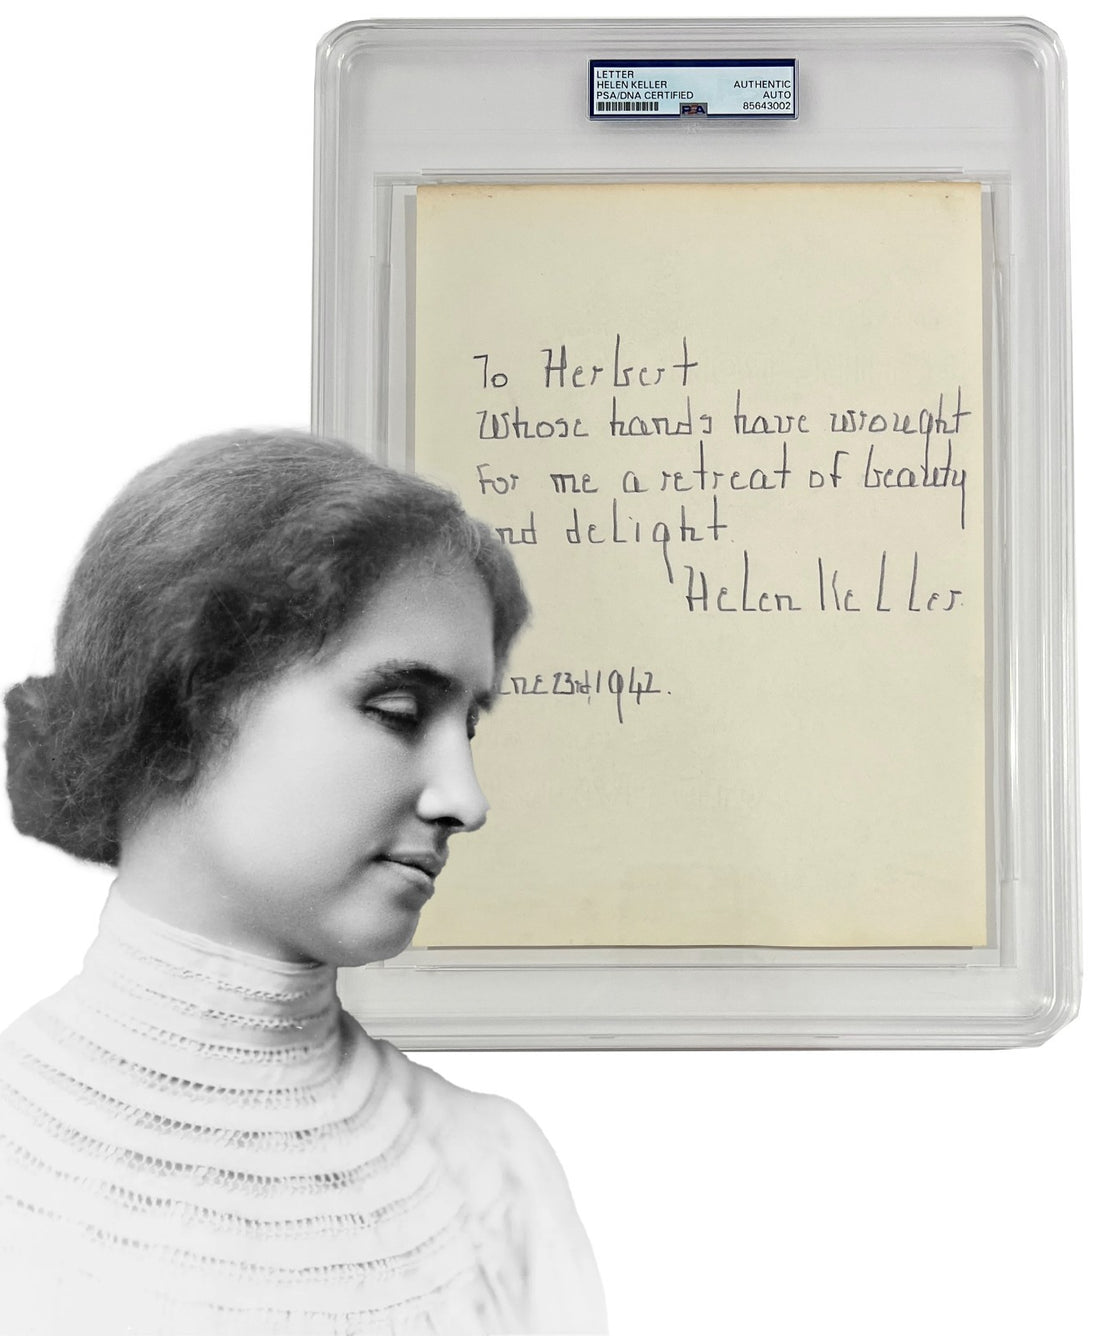 LETTER
HELEN KELLER
PSA/DNA CERTIFIED
AUTHENTIC
AUTO
85643002
PSA
To Herbert
Whose hands have wrought
For me a retreat of beauty
nd delight.
Helen Keller.
ne 23rd, 1942.